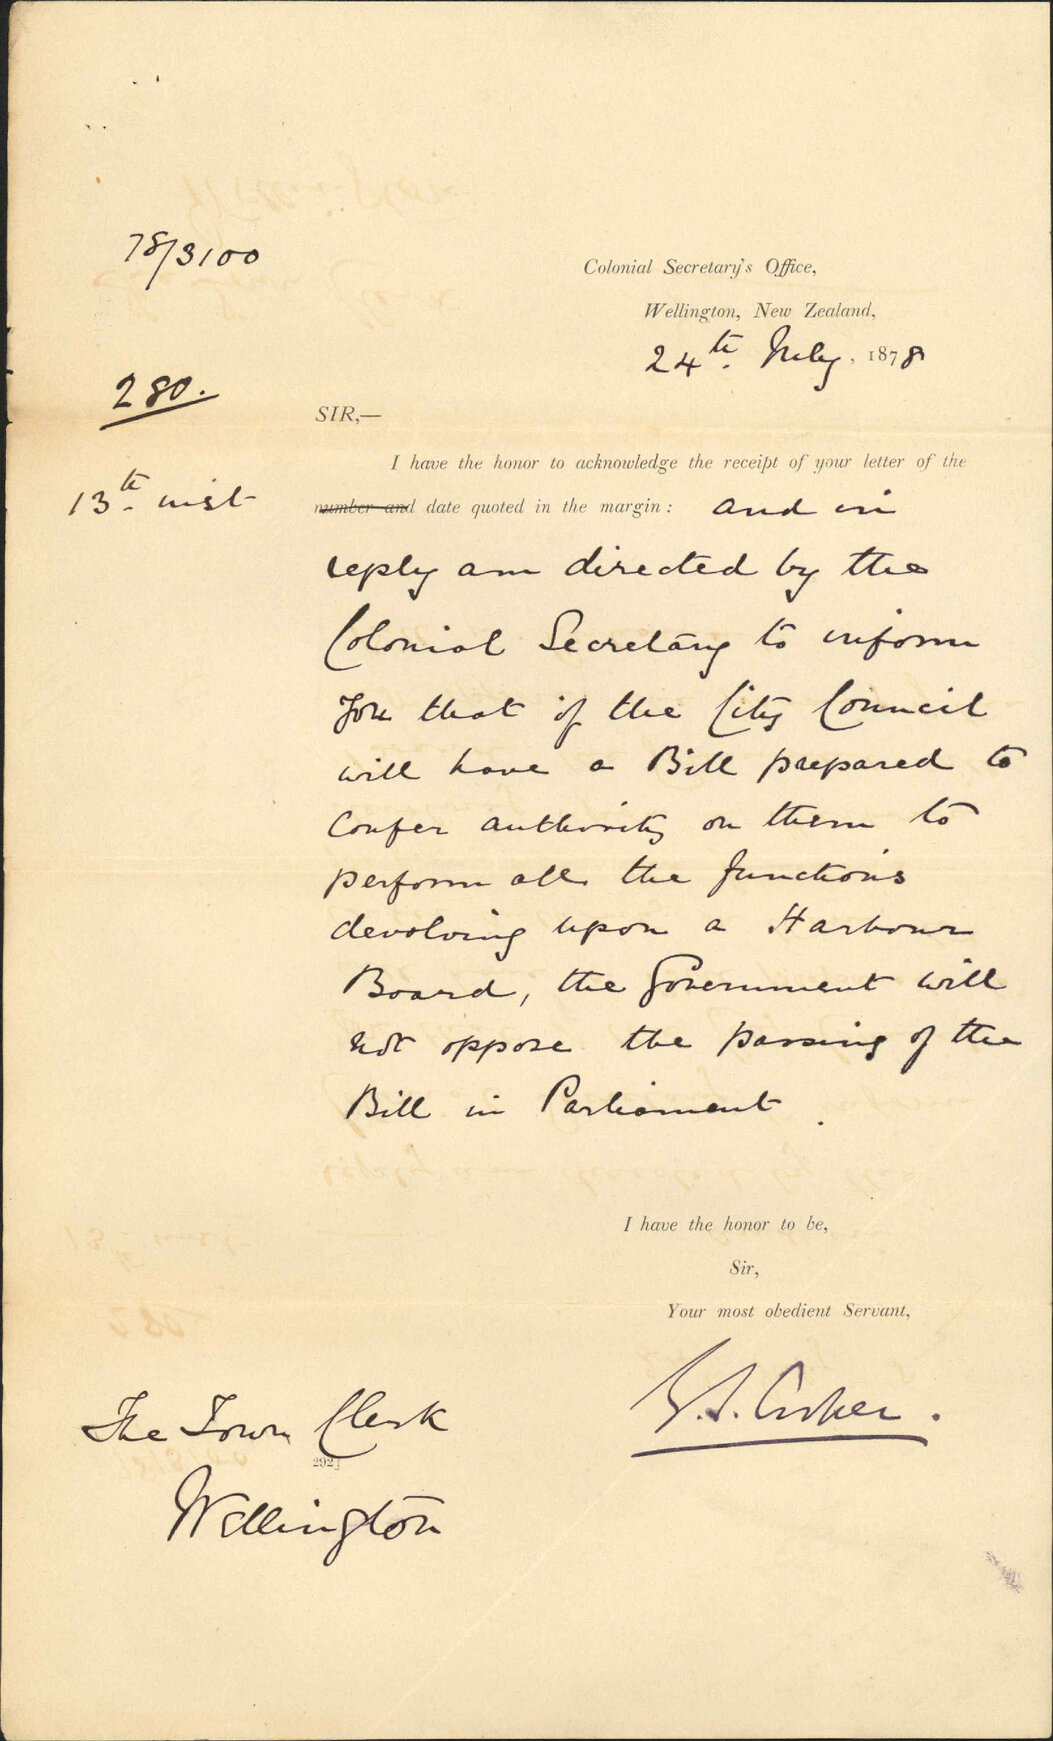 78/3100
Colonial Secretary's Office,
Wellington, New Zealand,
24th. July, 1878
280.
SIR,—
I have the honor to acknowledge the receipt of your letter of the
13th. inst
number and date quoted in the margin: and in
reply am directed by the
Colonial Secretary to inform
you that if the City Council
will have a Bill prepared to
confer authority on them to
perform all the functions
devolving upon a Harbour
Board, the Government will
not oppose the passing of the
Bill in Parliament.
I have the honor to be,
Sir,
Your most obedient Servant,
G. S. Cooper.
The Town Clerk
292]
Wellington